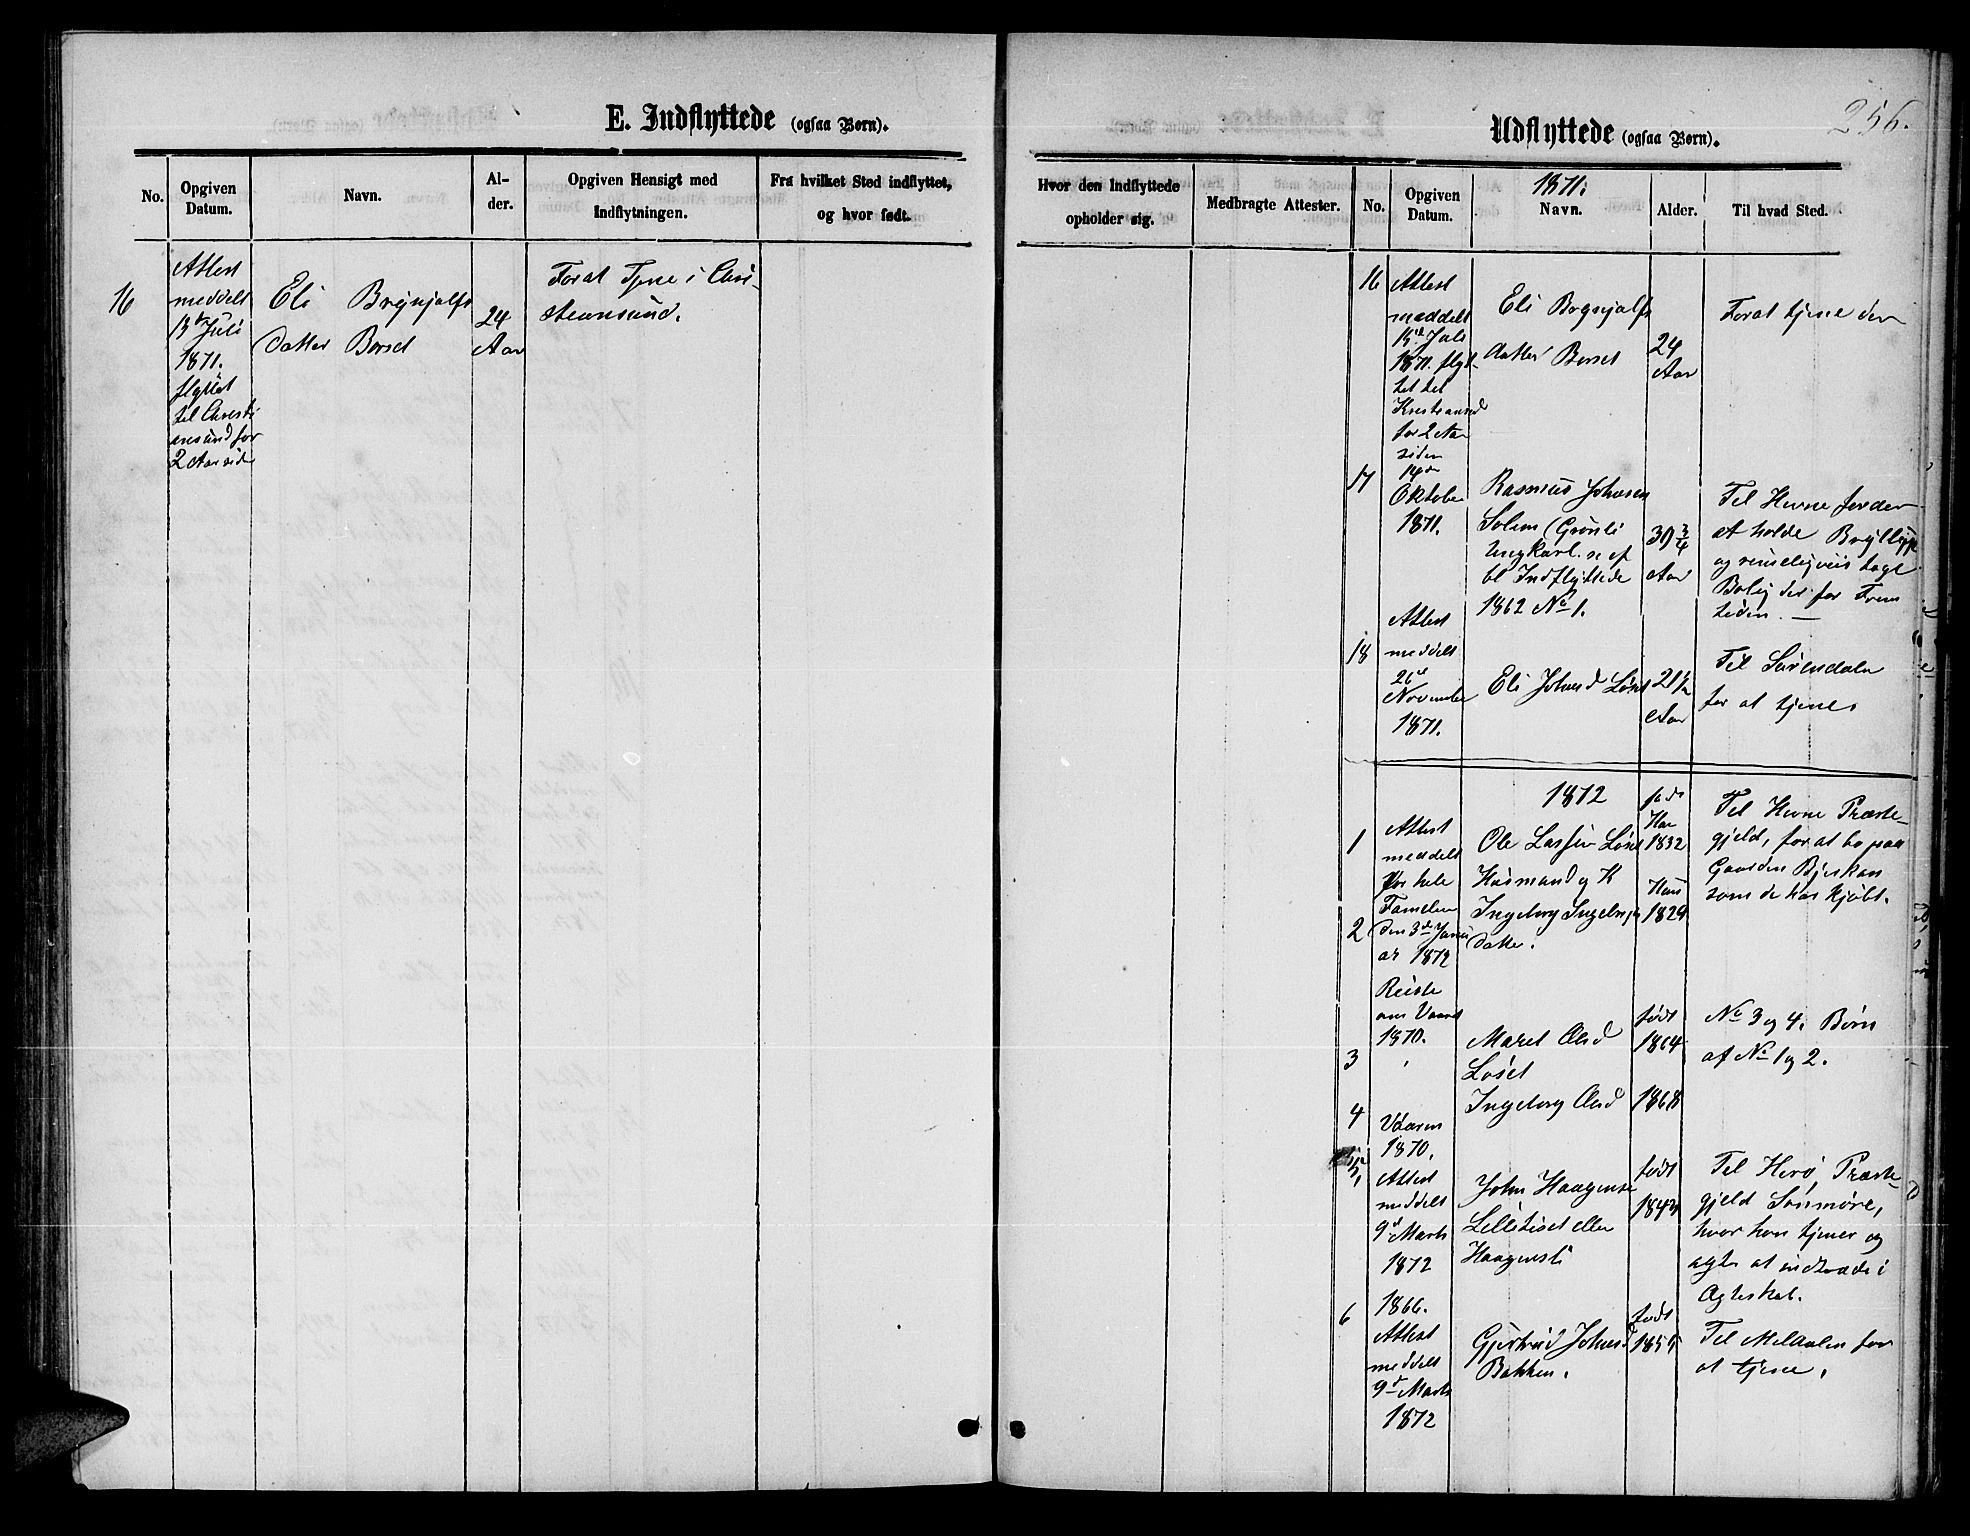 E. Indflyttede (ogsaa Børn).
No.
Opgiven
Datum.
Navn.
Al-
der.
Opgiven Hensigt med
Indflytningen.
Fra hvilket Sted indflyttet,
og hvor født.
16
Attest
meddelt
Juli
1871.
flyttet
til Christi
ansund for
2 Aar siden
Eli Brynjulfs
datter Børset
24
Aar
For at Tjene i Chri-
stiansund.
Udflyttede (ogsaa Børn).
256.
Hvor den Indflyttede
opholder sig.
Medbragte Attester.
No.
Opgiven
Datum.
1871.
Navn.
Alder.
Til hvad Sted.
16
Attest
meddelt
Juli
1871. flyt-
tet til
for 2 Aar
siden
Eli
datter Børset
24
Aar
For at tjene der
17
14de
Oktober
1871.
Rasmus Johnsen
Solem (Grønli
Ungkarl.
Indflyttede
1862 No 1.
39 3/4
Aar
Til Hevne for der
at holde Bryllup
og rimeligviis tage
Bolig der for Frem
tiden. —
18
Attest
meddelt
26de
November
1871.
Eli Johnsd Løset
21 1/2
Aar
Til Surendalen
for at tjene.
1872
1
Attest
meddelt
for hele
Familien
Ole Larsen Løset
Husmand og K
født
Han
1832
Til Hevne Præste-
gjeld, for at bo paa
Gaarden
som de har kjøbt.
2
den 3de Janu
ar 1872
Reiste
om Vaaret
1870.
Ingeborg Ingebrigts
datter.
Hun
1829
3
Maret Olsd
Løset
født
1864
No 3 og 4. Børn
af No 1 og 2.
4
Vaaren
1870.
Ingeborg Olsd
1868
Attest
meddelt
9d Marts
1872
John Haagense
Lillitiset eller
Haagensli
født
1843
Til Herø Præste-
gjeld Søndmøre,
hvor han tjener og
agter at indtræde i
Ægteskab.
6
1866.
Attest
meddelt
9d Marts
1872
Gjertrud Johnsd
Bakken.
født
1855
Til Meldalen for
at tjene.